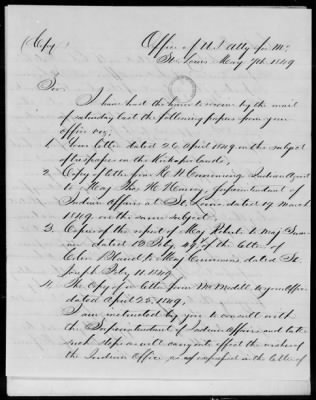 (Copy) Office of U.S. Atty for Mo
St. Louis May 7th 1849
Sir
I have had the honor to receive by the mail
of saturday last the following papers from your
office viz;
1. Your letter dated 26 April 1849 on the subject
of trespasses on the Kickapoo lands;
2. Copy of letter from R. W Cummins, Indian Agent
to Maj Tho. H. Harvey, Superintendent of
Indian Affairs at St. Louis dated 17 March
1849, on the same subject;
3. Copies of the report of May Roberts to Maj
dated 13 Feby 49, & of the letter of
to Maj Cummins dated St.
Joseph Feby 11. 1849
4. The Copy of a letter from Mr. Medill, to your Office
dated April 25. 1849,
I am instructed by you to consult with
the Superintendent of Indian Affairs and take
such steps as will carry into effect the wishes of
the Indian Office, as expressed in the letter of